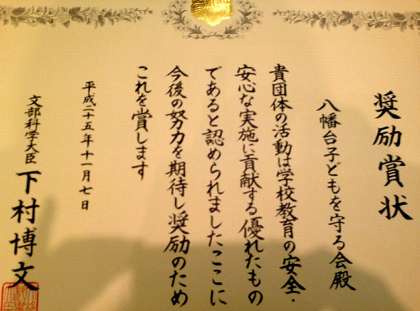 奨励賞状
八幡台子どもを守る会殿
貴団体の活動は学校教育の安全・
安心な実施に貢献する優れたもの
であると認められましたここに
今後の努力を期待し奨励のため
これを賞します
平成二十五年十一月七日
文部科学大臣 下村博文